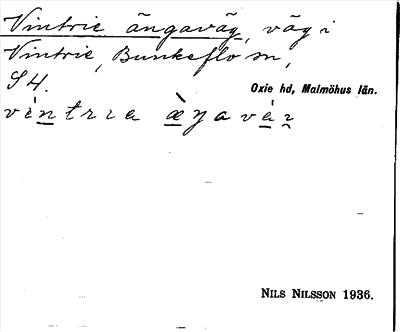 Vintrie ängaväg, väg i
Vintrie, Bunkeflo sn,
S 4.
Oxie hd, Malmöhus län.
vìntrıa æ̀ŋavàɩ
NILS NILSSON 1936.